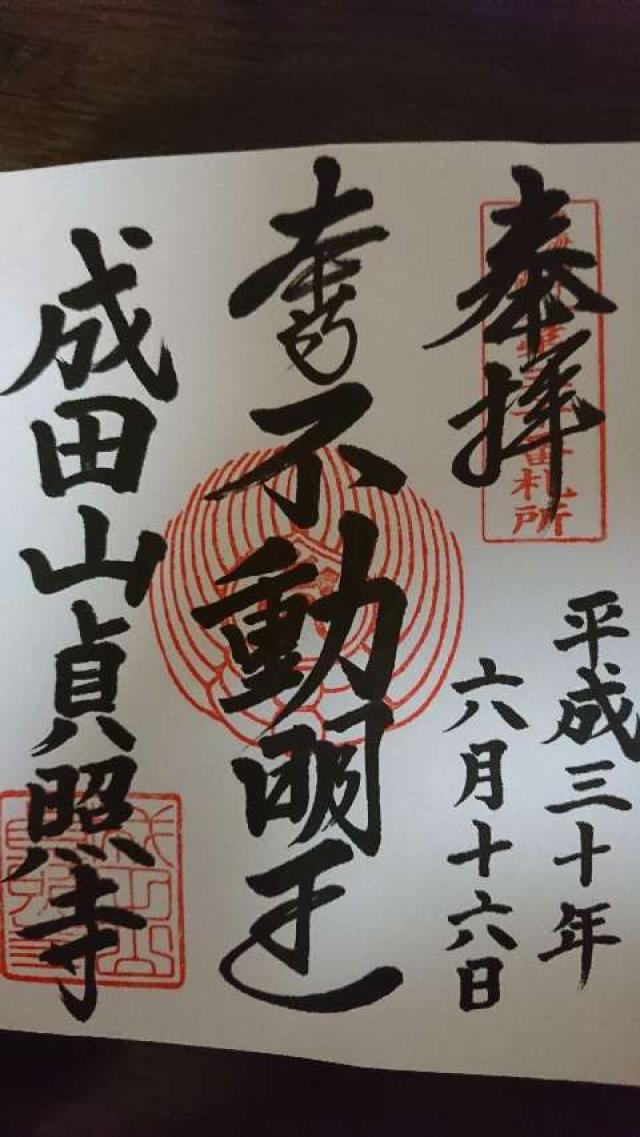 奉拝
番札所
平成三十年
六月十六日
不動明王
成田山貞照寺